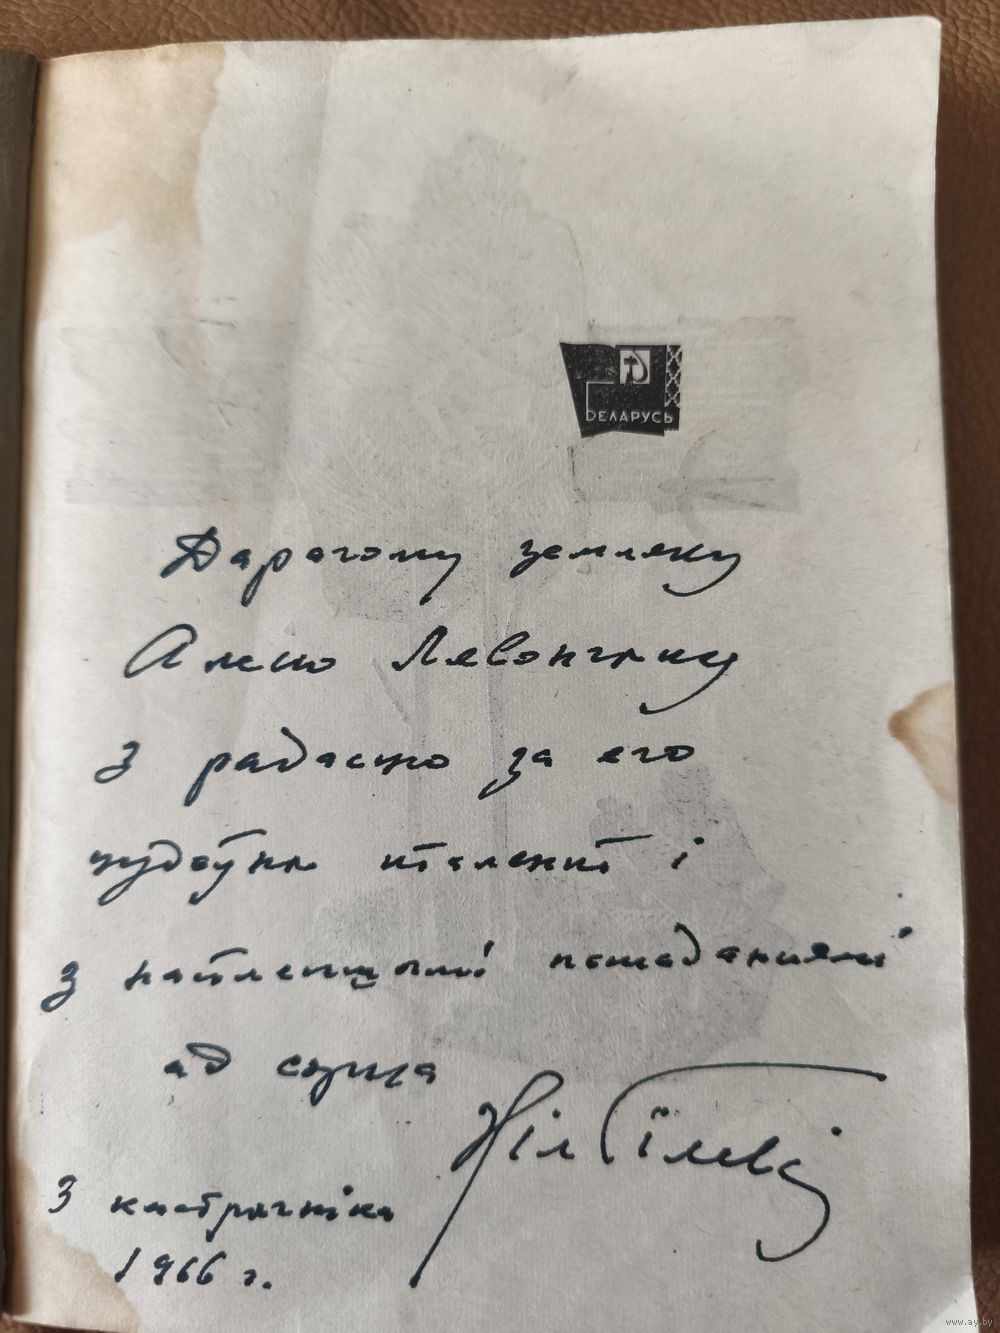 БЕЛАРУСЬ
Дарагому земляку
Алесю Лявончыку
з радасцю за его
чудоўны талент і
з найлепшымі пажаданиямі
ад сэрца
Ніл Гілевіч
3 кастрычніка
1966 г.
www.ay.by